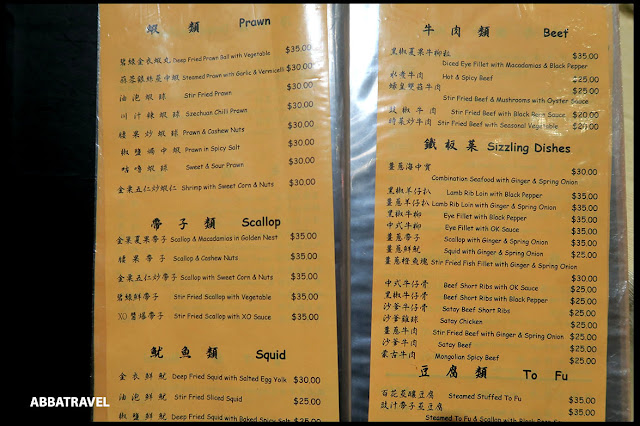 蝦 類 Prawn
碧綠金衣蝦丸 Deep Fried Prawn Ball with Vegetable $35.00
蒜蓉銀絲蒸中蝦 Steamed Prawn with Garlic & Vermicelli $30.00
油 泡 蝦 球 Stir Fried Prawn $30.00
川 汁 辣 蝦 球 Szechuan Chilli Prawn $30.00
腰 果 炒 蝦 球 Prawn & Cashew Nuts $30.00
椒 鹽 焗 中 蝦 Prawn in Spicy Salt $30.00
咕 嚕 蝦 球 Sweet & Sour Prawn $30.00
金粟五仁炒蝦仁 Shrimp with Sweet Corn & Nuts $30.00
帶 子 類 Scallop
金巢夏果帶子 Scallop & Macadamias in Golden Nest $35.00
腰 果 帶 子 Scallop & Cashew Nuts $35.00
金粟五仁炒帶子 Scallop with Sweet Corn & Nuts $35.00
碧綠鮮帶子 Stir Fried Scallop with Vegetable $35.00
XO 醬爆帶子 Stir Fried Scallop with XO Sauce $35.00
魷 魚 類 Squid
金 衣 鮮 魷 Deep Fried Squid with Salted Egg Yolk $30.00
油 泡 鮮 魷 Stir Fried Sliced Squid $25.00
椒 鹽 鮮 魷 Deep Fried Squid with Baked Spicy Salt
牛 肉 類 Beef
黑椒夏果牛柳粒 $35.00
Diced Eye Fillet with Macadamias & Black Pepper
水煮牛肉 Hot & Spicy Beef $25.00
蠔皇雙菇牛肉 $25.00
Stir Fried Beef & Mushrooms with Oyster Sauce
豉 椒 牛 肉 Stir Fried Beef with Black Bean Sauce $20.00
時菜炒牛肉 Stir Fried Beef with Seasonal Vegetable $20.00
鐵 板 菜 Sizzling Dishes
薑蔥海中寶 $30.00
Combination Seafood with Ginger & Spring Onion
黑椒羊仔扒 Lamb Rib Loin with Black Pepper $35.00
薑蔥羊仔扒 Lamb Rib Loin with Ginger & Spring Onion $35.00
黑椒牛柳 Eye Fillet with Black Pepper $35.00
中式牛柳 Eye Fillet with OK Sauce $35.00
薑蔥帶子 Scallop with Ginger & Spring Onion $35.00
薑蔥鮮魷 Squid with Ginger & Spring Onion $25.00
薑蔥橙魚塊 Stir Fried Fish Fillet with Ginger & Spring Onion
$30.00
中式牛仔骨 Beef Short Ribs with OK Sauce $25.00
黑椒牛仔骨 Beef Short Ribs with Black Pepper $25.00
沙爹牛仔骨 Satay Beef Short Ribs $25.00
沙爹雞球 Satay Chicken $25.00
薑蔥牛肉 Stir Fried Beef with Ginger & Spring Onion $25.00
沙爹牛肉 Satay Beef $25.00
蒙古牛肉 Mongolian Spicy Beef $25.00
豆 腐 類 To Fu
百花蒸釀豆腐 Steamed Stuffed To Fu $35.00
豉汁帶子蒸豆腐 $35.00
Steamed To Fu & Scallop with Black Bean
ABBATRAVEL